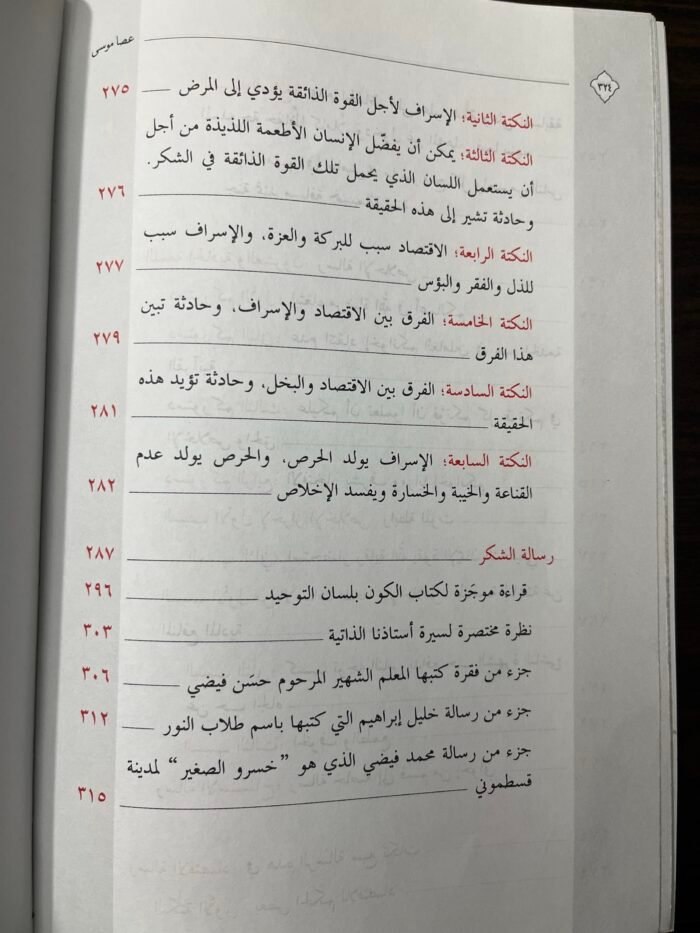 ٣٢٤
عصا موسى
النكتة الثانية؛ الإسراف لأجل القوة الذائقة يؤدي إلى المرض ٢٧٥
النكتة الثالثة؛ يمكن أن يفضّل الإنسان الأطعمة اللذيذة من أجل
أن يستعمل اللسان الذي يحمل تلك القوة الذائقة في الشكر.
وحادثة تشير إلى هذه الحقيقة ٢٧٦
النكتة الرابعة؛ الاقتصاد سبب للبركة والعزة، والإسراف سبب
للذل والفقر والبؤس ٢٧٧
النكتة الخامسة؛ الفرق بين الاقتصاد والإسراف، وحادثة تبين
هذا الفرق ٢٧٩
النكتة السادسة؛ الفرق بين الاقتصاد والبخل، وحادثة تؤيد هذه
الحقيقة ٢٨١
النكتة السابعة؛ الإسراف يولد الحرص، والحرص يولد عدم
القناعة والخيبة والخسارة ويفسد الإخلاص ٢٨٢
رسالة الشكر ٢٨٧
قراءة موجَزة لكتاب الكون بلسان التوحيد ٢٩٦
نظرة مختصرة لسيرة أستاذنا الذاتية ٣٠٣
جزء من فقرة كتبها المعلم الشهير المرحوم حسَن فيضي ٣٠٦
جزء من رسالة خليل إبراهيم التي كتبها باسم طلاب النور ٣١٢
جزء من رسالة محمد فيضي الذي هو ”خسرو الصغير“ لمدينة
قسطموني ٣١٥